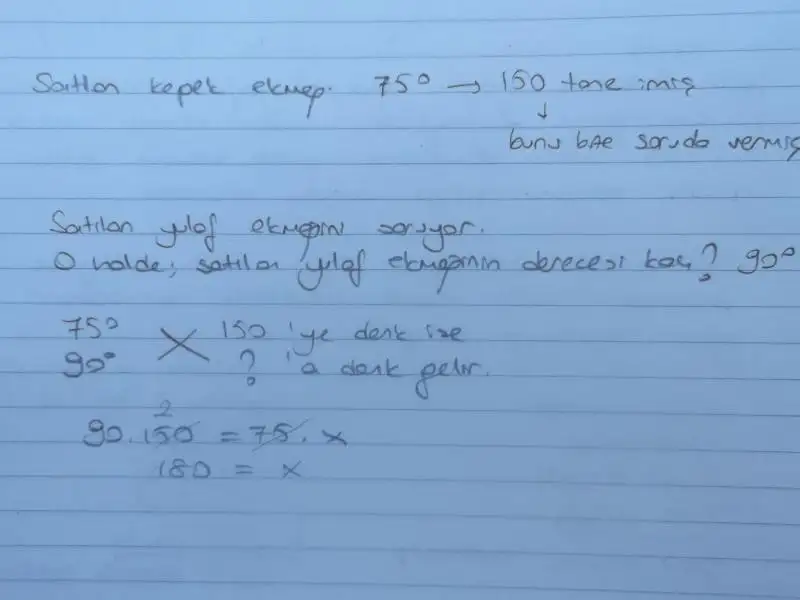 Satılan kepek ekmeği 75° → 150 tane imiş
↓
bunu bize soruda vermiş
Satılan yulaf ekmeğini soruyor.
O halde; satılan yulaf ekmeğinin derecesi kaç? 90°
75° 150 'ye denk ise
90° ? 'a denk gelir.
2
90.150 = 75.x
180 = x